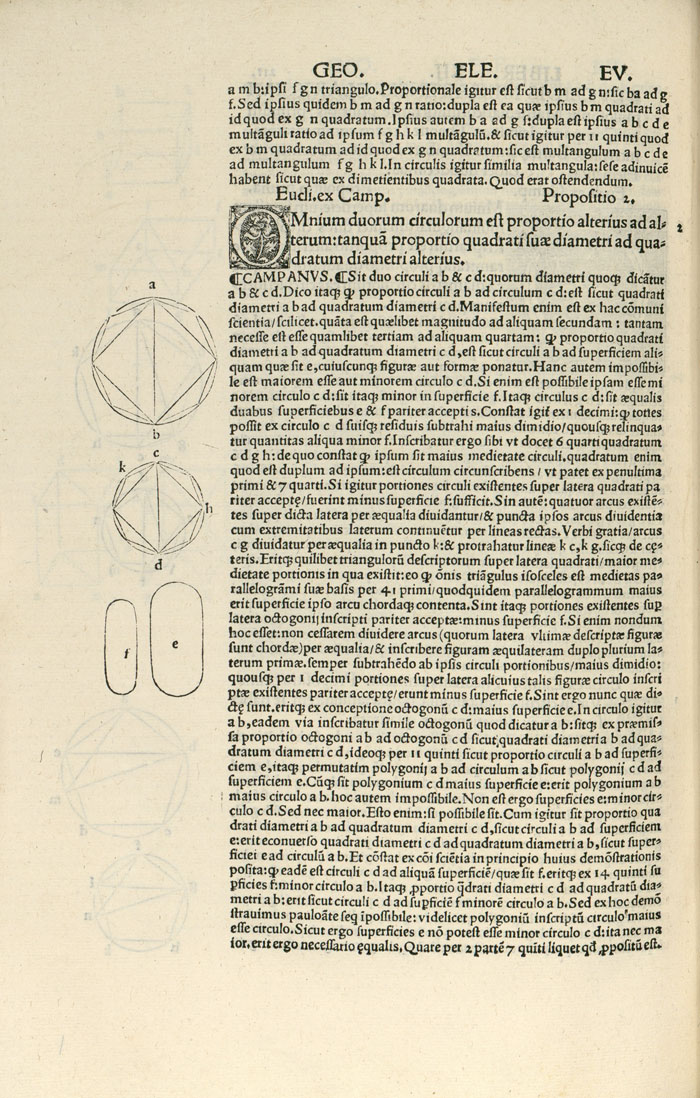 GEO. ELE. EV.
a m b:ipsi f g n triangulo.Proportionale igitur est sicut b m ad g n:sic b a ad g
f.Sed ipsius quidem b m ad g n ratio:dupla est ea quæ ipsius b m quadrati ad
id quod ex g n quadratum.Ipsius autem b a ad g f:dupla est ipsius a b c d e
multāguli ratio ad ipsum f g h k l multāgulū.& sicut igitur per 11 quinti quod
ex b m quadratum ad id quod ex g n quadratum:sic est multangulum a b c d e
ad multangulum f g h k l.In circulis igitur similia multangula:sese adinuicē
habent sicut quæ ex dimetientibus quadrata. Quod erat ostendendum.
Eucli.ex Camp. Propositio 2.
OMnium duorum circulorum est proportio alterius ad al-
terum:tanquā proportio quadrati suæ diametri ad qua-
dratum diametri alterius.
2
¶CAMPANVS. ¶Sit duo circuli a b & c d:quorum diametri quoqꝫ dicātur
a b & c d.Dico itaqꝫ ꝙ proportio circuli a b ad circulum c d:est sicut quadrati
diametri a b ad quadratum diametri c d.Manifestum enim est ex hac cōmuni
scientia/scilicet.quāta est quælibet magnitudo ad aliquam secundam : tantam
necesse est esse quamlibet tertiam ad aliquam quartam: ꝙ proportio quadrati
diametri a b ad quadratum diametri c d,est sicut circuli a b ad superficiem ali-
quam quæ sit e,cuiuscunqꝫ figuræ aut formæ ponatur. Hanc autem impossibi-
le est maiorem esse aut minorem circulo c d.Si enim est possibile ipsam esse mi
norem circulo c d:sit itaqꝫ minor in superficie f.Itaqꝫ circulus c d:sit æqualis
duabus superficiebus e & f pariter acceptis.Constat igit̃ ex 1 decimi:ꝙ toties
possit ex circulo c d suisqꝫ residuis subtrahi maius dimidio/quousqꝫ relinqua-
tur quantitas aliqua minor f.Inscribatur ergo sibi vt docet 6 quarti quadratum
c d g h:de quo constat ꝙ ipsum sit maius medietate circuli.quadratum enim
quod est duplum ad ipsum:est circulum circunscribens / vt patet ex penultima
primi & 7 quarti.Si igitur portiones circuli existentes super latera quadrati pa
riter acceptę/fuerint minus superficie f:sufficit.Sin autē:quatuor arcus existē-
tes super dicta latera per æqualia diuidantur/& puncta ipsos arcus diuidentia
cum extremitatibus laterum continuētur per lineas rectas.Verbi gratia/arcus
c g diuidatur per æqualia in puncto k:& protrahatur lineæ k c,k g.sicqꝫ de cę-
teris.Eritqꝫ quilibet triangulorū descriptorum super latera quadrati/maior me-
dietate portionis in qua existit:eo ꝙ ōnis triāgulus isosceles est medietas pa-
rallelogrāmi suæ basis per 41 primi/quodquidem parallelogrammum maius
erit superficie ipso arcu chordaqꝫ contenta.Sint itaqꝫ portiones existentes sup̱
latera octogonij inscripti pariter acceptæ:minus superficie f.Si enim nondum
hoc esset:non cessarem diuidere arcus(quorum latera vltimæ descriptæ figuræ
sunt chordæ)per æqualia/& inscribere figuram æquilateram duplo plurium la-
terum primæ.semper subtrahēdo ab ipsis circuli portionibus/maius dimidio:
quousqꝫ per 1 decimi portiones super latera alicuius talis figuræ circulo inscri
ptæ existentes pariter acceptę/erunt minus superficie f.Sint ergo nunc quæ di-
ctę sunt.eritqꝫ ex conceptione octogonū c d:maius superficie e.In circulo igitur
a b,eadem via inscribatur simile octogonū quod dicatur a b:sitqꝫ ex præmis-
sa proportio octogoni a b ad octogonū c d sicut,quadrati diametri a b ad qua-
dratum diametri c d,ideoqꝫ per 11 quinti sicut proportio circuli a b ad superfi-
ciem e,itaqꝫ permutatim polygonij a b ad circulum a b sicut polygonij c d ad
superficiem e.Cūqꝫ sit polygonium c d maius superficie e:erit polygonium a b
maius circulo a b.hoc autem impossibile.Non est ergo superficies e:minor cir-
culo c d.Sed nec maior.Esto enim:si possibile sit.Cum igitur sit proportio qua
drati diametri a b ad quadratum diametri c d,sicut circuli a b ad superficiem
e:erit econuerso quadrati diametri c d ad quadratum diametri a b,sicut super-
ficiei e ad circulū a b.Et cōstat ex cōi sciētia in principio huius demōstrationis
posita:ꝙ eadē est circuli c d ad aliquā superficiē/quæ sit f.eritqꝫ ex 14 quinti su
ꝑficies f:minor circulo a b.Itaqꝫ ꝓportio q̄drati diametri c d ad quadratū dia-
metri a b:erit sicut circuli c d ad suꝑficiē f minorē circulo a b.Sed ex hoc demō
strauimus pauloāte seq̄ īpossibile: videlicet polygoniū inscriptū circulo maius
esse circulo.Sicut ergo superficies e nō potest esse minor circulo c d:ita nec ma
ior.erit ergo necessario ęqualis, Quare per 2 partē 7 quīti liquet qđ ꝓpositū est.
a
b
c
k
h
d
f
e